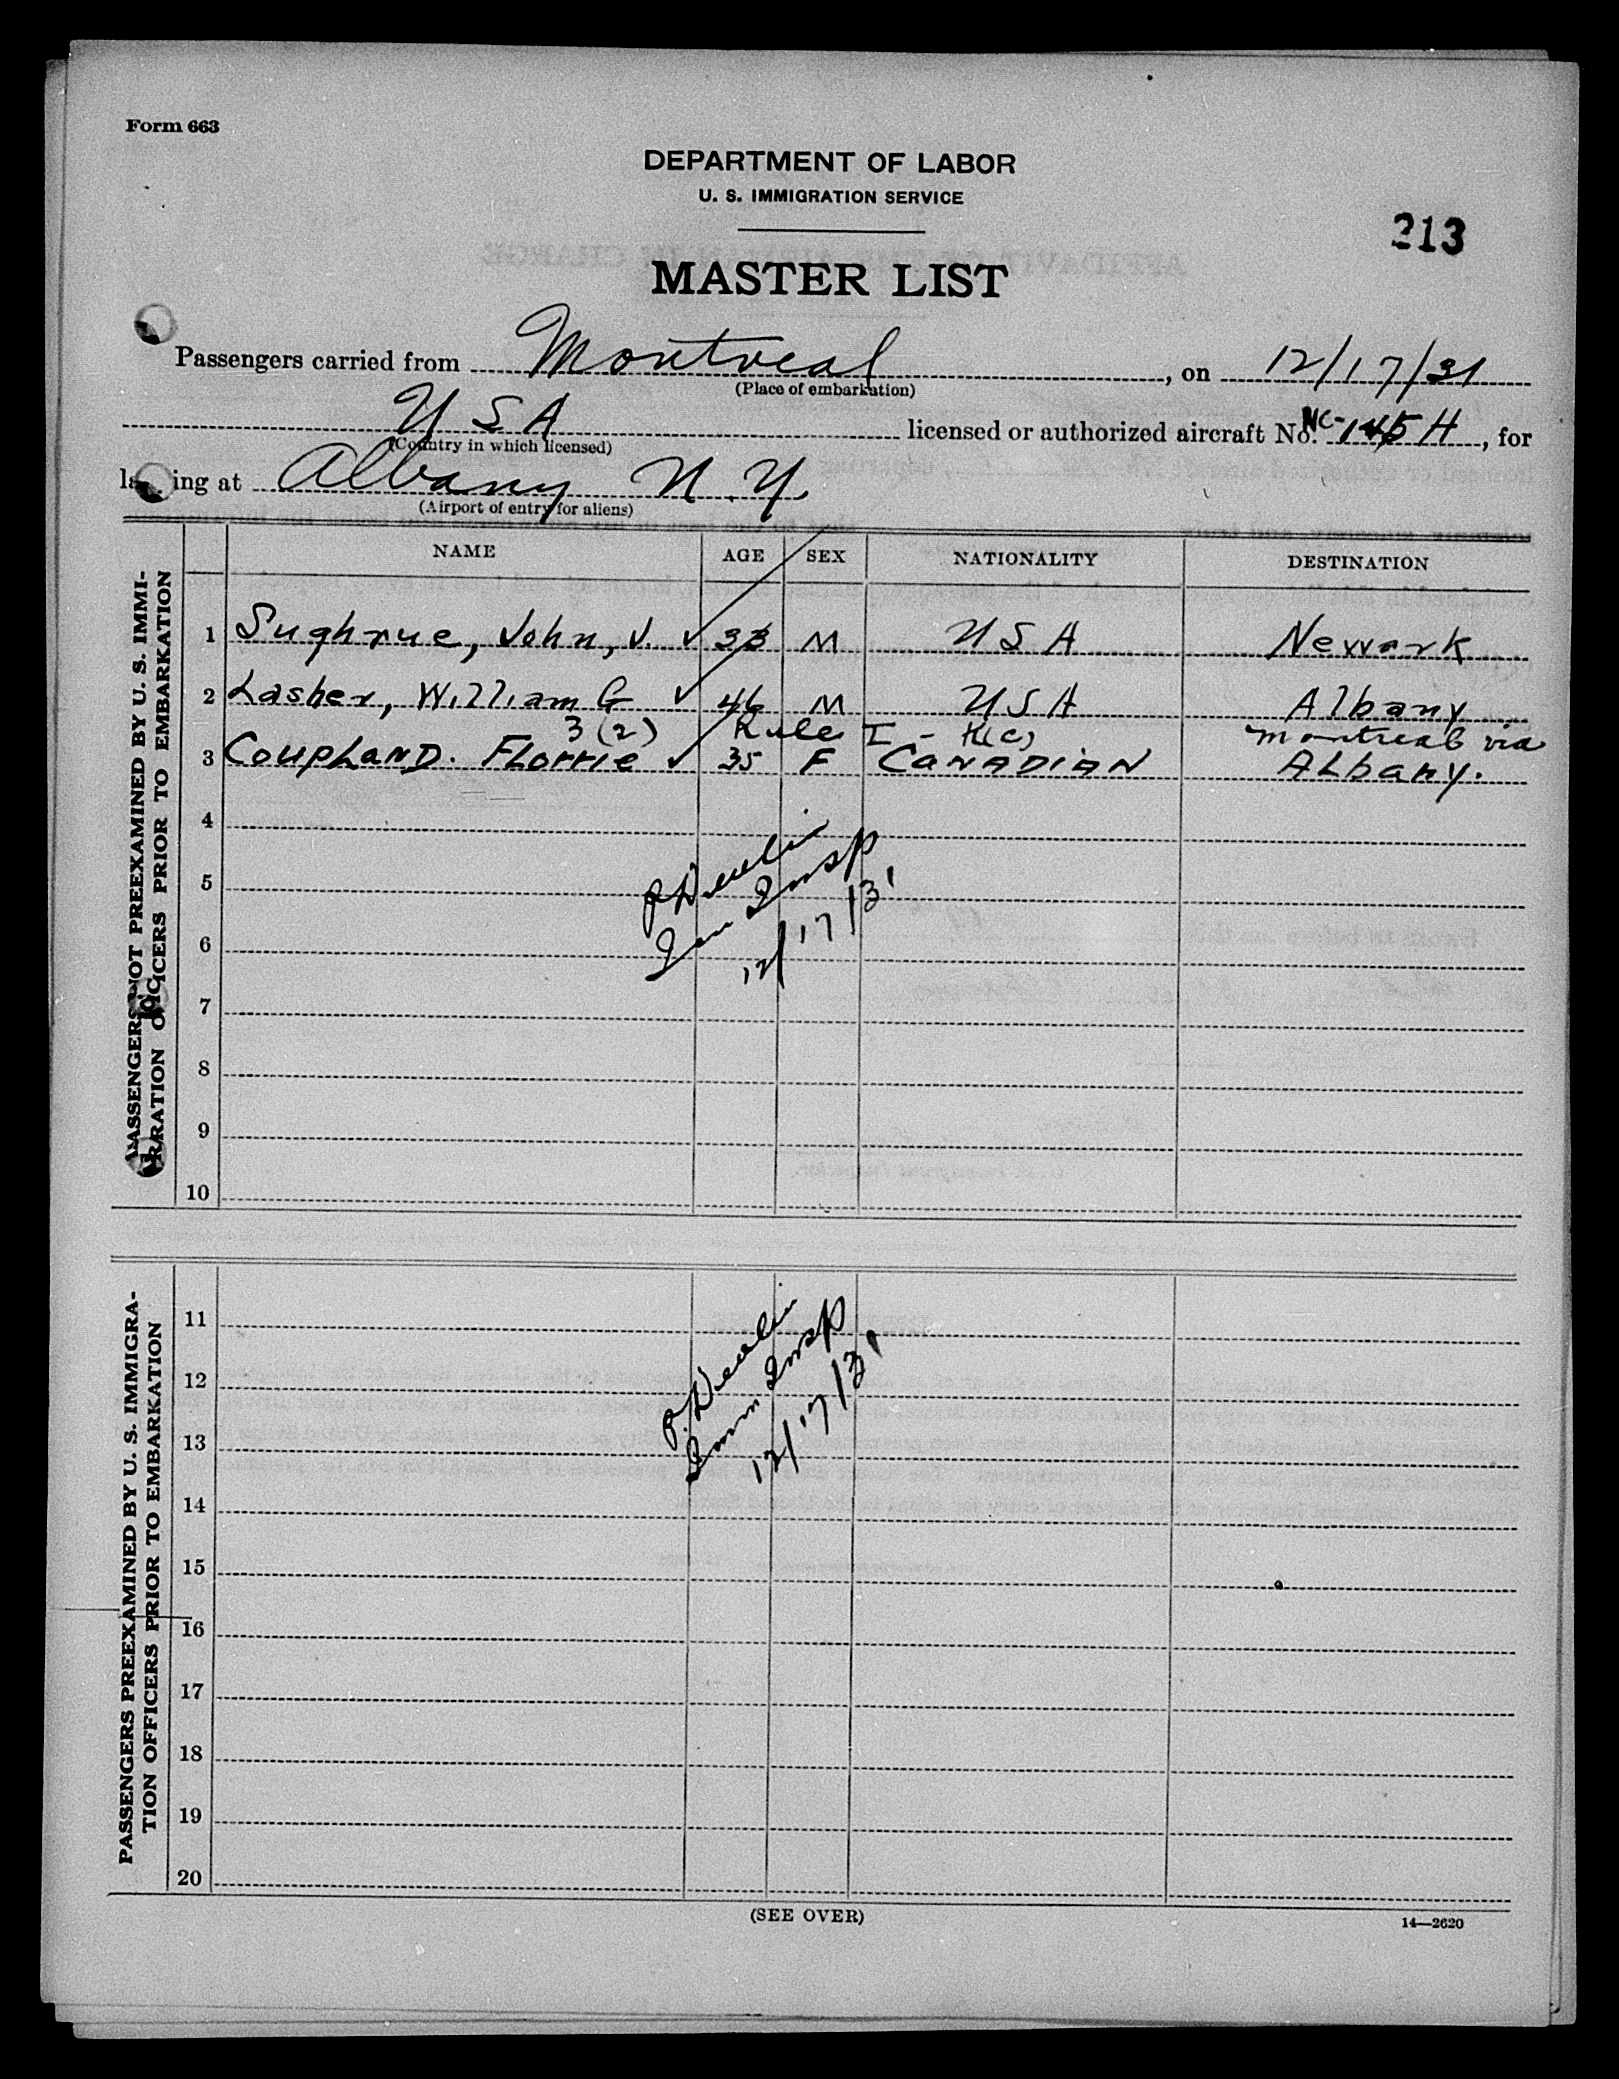 Form 663
DEPARTMENT OF LABOR
U. S. IMMIGRATION SERVICE
213
MASTER LIST
Passengers carried from Montreal, on 12/17/31
(Place of embarkation)
USA licensed or authorized aircraft No. NC-145H, for
(Country in which licensed)
la ing at Albany N.Y.
(Airport of entry for aliens)
NAME AGE SEX NATIONALITY DESTINATION
PASSENGERS NOT PREEXAMINED BY U. S. IMMI-
GRATION OFFICERS PRIOR TO EMBARKATION
1 Sughrue, John, J. ✓ 33 M USA Newark
2 Lasher, William G ✓ 46 M USA Albany
3(2) Rule I - H(c) Montreal via
3 Coupland. Florrie ✓ 35 F Canadian Albany.
4
5
6
7
8
9
10
P. Devlin
Imm Insp
12/17/31
PASSENGERS PREEXAMINED BY U. S. IMMIGRA-
TION OFFICERS PRIOR TO EMBARKATION
11
12
13
14
15
16
17
18
19
20
P. Devlin
Imm Insp
12/17/31
(SEE OVER)
14—2620